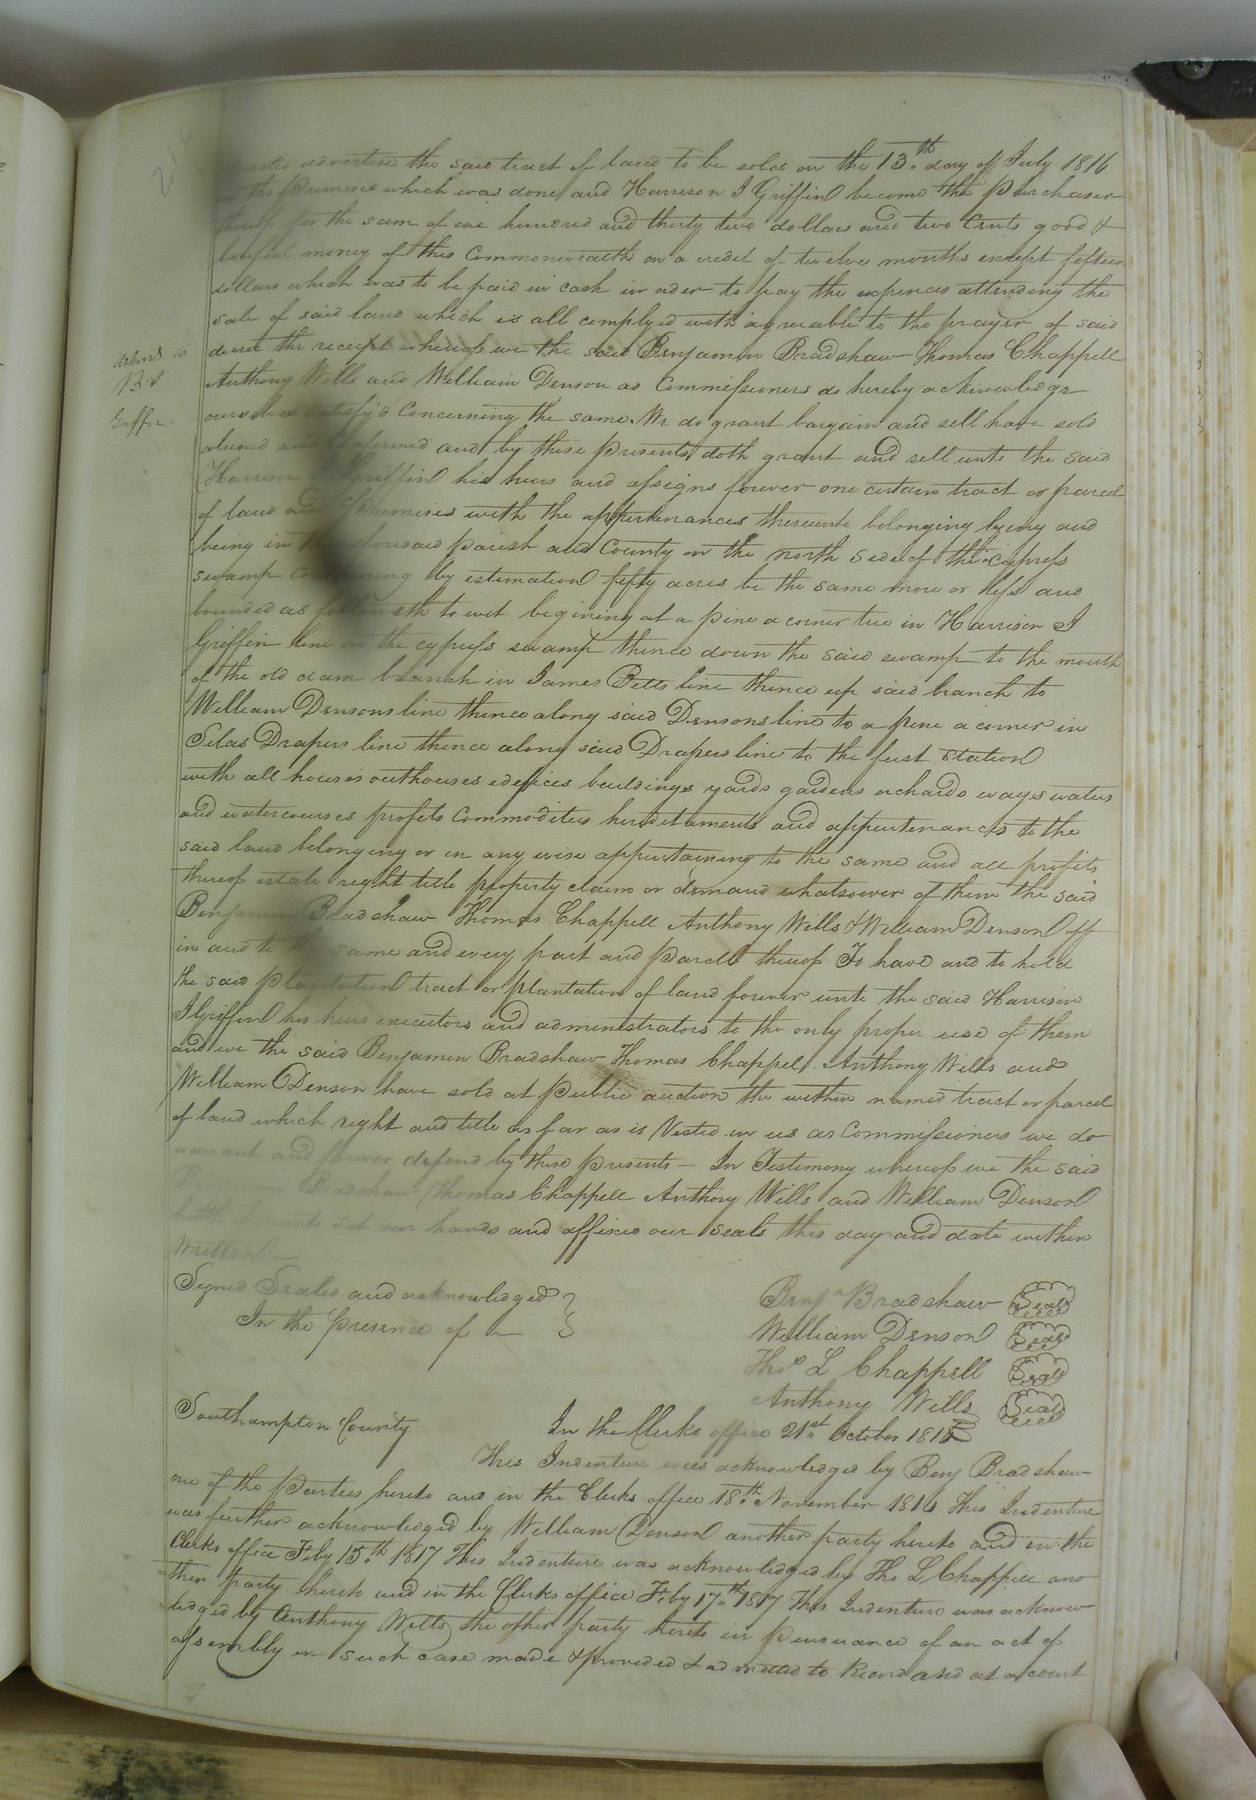 advertise the said tract of land to be sold on the 13.th day of July 1816
the Premises which was done and Harrison J Griffin become the Purchaser
thereof for the sum of one hundred and thirty two dollars and two Cents good &
lawful money of this Commonwealth on a credit of twelve months except fifteen
dollars which was to be paid in cash in order to pay the expences attending the
sale of said land which is all complyed with agreeable to the prayer of said
decree the receipt whereof we the said Benjamin Bradshaw Thomas Chappell
Anthony Wills and William Denson as Commissioners do hereby acknowledge
ourselves satisfy'd Concerning the same. We do grant bargain and sell have sold
aliened and confirmed and by these Presents doth grant and sell unto the said
Harrison J Griffin his heirs and assigns forever one certain tract or parcel
of land and Premises with the appurtenances thereunto belonging lying and
being in the aforesaid Parish and County on the north side of the cypress
swamp containing by estimation fifty acres be the same more or less and
bounded as followeth to wit begining at a pine a corner tree in Harrison J
Griffin line in the cypress swamp thence down the said swamp to the mouth
of the old dam branch in James Betts line thence up said branch to
William Densons line thence along said Densons line to a pine a corner in
Silas Drapers line thence along said Drapers line to the first station
with all houses outhouses edifices buildings yards gardens orchards ways waters
and watercourses profits Commodities hereditaments and appurtenances to the
said land belonging or in any wise appertaining to the same and all profits
thereof estate right title property claim or demand whatsoever of them the said
Benjamin Bradshaw Thomas Chappell Anthony Wills & William Denson off
in and to the same and every part and Parcell thereof To have and to hold
the said Plantation tract or plantation of land forever unto the said Harrison
J Griffin his heirs executors and administrators to the only proper use of them
and we the said Benjamin Bradshaw Thomas Chappel. Anthony Wills and
William Denson have sold at Public auction the within named tract or parcel
of land which right and title as far as is Vested in us as Commissioners we do
warrant and forever defend by these Presents – In Testimony whereof we the said
Benjamin Bradshaw Thomas Chappell Anthony Wills and William Denson
hath hereunto set our hands and affixed our seals this day and date within
Written –
Signed Sealed and acknowledged
In the presence of –
Benj.a Bradshaw Seal
William Denson Seal
Tho.s L Chappell Seal
Anthony Wills Seal
Southampton County
In the Clerks office 21st October 1816
This Indenture was acknowledged by Benj Bradshaw
one of the Parties hereto and in the Clerks office 18.th November 1816 This Indenture
was further acknowledged by William Denson another party hereto and in the
Clerks office Feby 15.th 1817 This Indenture was acknowledged by Tho L Chappell ano
ther party hereto and in the Clerks office Feby 17.th 1817 This Indenture was acknow
ledged by Anthony Wills the other party hereto in pursuance of an act of
assembly in such case made & provided & admitted to Record and at a court